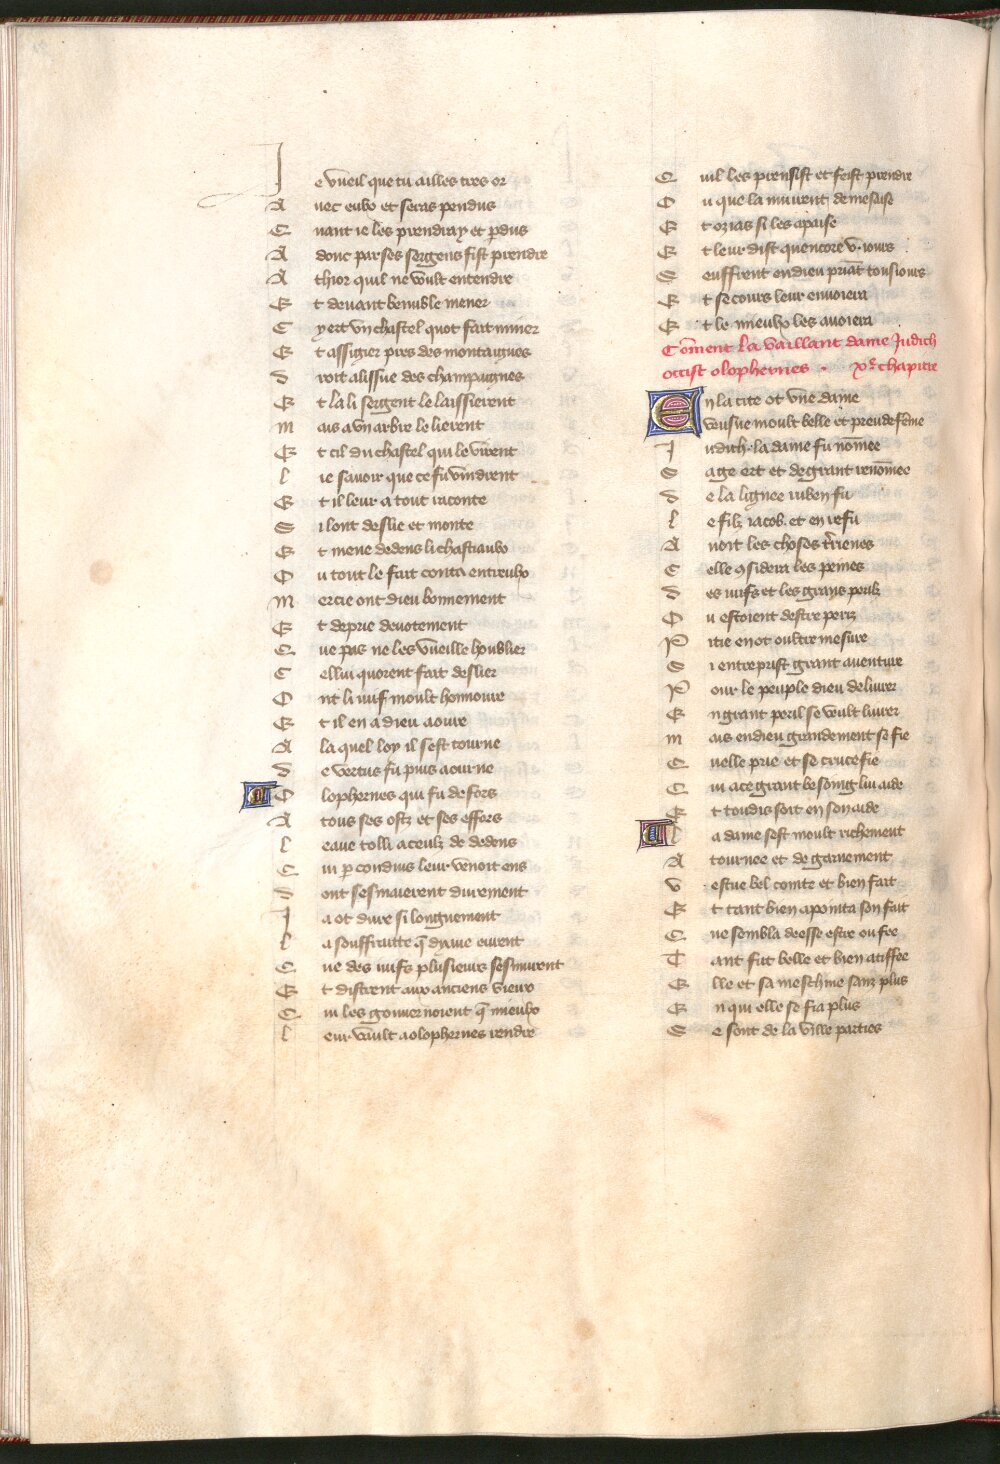 Je vueil que tu ailles tres or
Auec eulx et seras pendus
Quant ie les prendray et pdus
Adonc par ses sergens fist prendre
Athior quil ne voult entendre
Et deuant benulle mener
Cy ert vn chastel quot fait miner
Et assigier pres des montaignes
Droit a lissue des champaignes
Et la li sergent le laissierent
Mais a vn arbre le lierent
Et cil du chastel qui le virent
Le sauoir que ce fu vindrent
Et il leur a tout raconte
Si lont deslie et monte
Et mene dedens li chastiaulx
Ou tout le fait conta entreulx
Mercie ont dieu bonnement
Et deprie deuotement
Que pas ne les vueille houblier
Cellui quorent fait deslier
Ont li iuif moult honnoure
Et il en a dieu aoure
A la quel loy il sest tourne
De vertus fu puis aourne
Olophernes qui fu defors
A tous ses ostz et ses effors
Leaue tolli a ceulz de dedens
Qui p conduis leur venoit ens
Dont sesmaierent durement
Ja ot dure si longuement
La souffraitte q̄ dyaue eurent
Que des iuifs plusieurs sesmurent
Et distrent aux anciens vieux
Qui les gouuernoient q̄ mieulx
Leur vault a olophernes rendre
Quil les prensist et feist prendre
Ou que la muirent de mesaise
Et ozias si les apaise
Et leur dist quencore .v. iours
Seuffrent en dieu priāt tousiours
Et secours leur enuoiera
Et le mieulx les auoiera
Cōment la vaillant dame Judich
occist olophernes . xve chapitre
En la cite ot vne dame
Veufue moult belle et preudefēme
Judich la dame fu nōmee
Sage ert et de grant renōmee
De la lignee ruben fu
Le filz iacob. et en refu
Auoit les choses t̄rienes
Celle ꝯsidera les peines
Des iuifs et les grans perilz
Ou estoient destre periz
Pitie en ot oultre mesure
Si entreprist grant auenture
Pour le peuple dieu deliurer
En grant peril se voult liurer
Mais en dieu grandement se fie
Quelle prie et se crucefie
Qui a ce grant besoing lui aide
Et toudis soit en son aide
La dame sest moult richement
Atournee et de garnement
Vestue bel cointe et bien fait
Et tant bien apointa son fait
Que sembla deesse estre ou fee
Tant fut belle et bien atiffee
Elle et sa meschine sanz plus
En qui elle se fia plus
Se sont de la ville parties